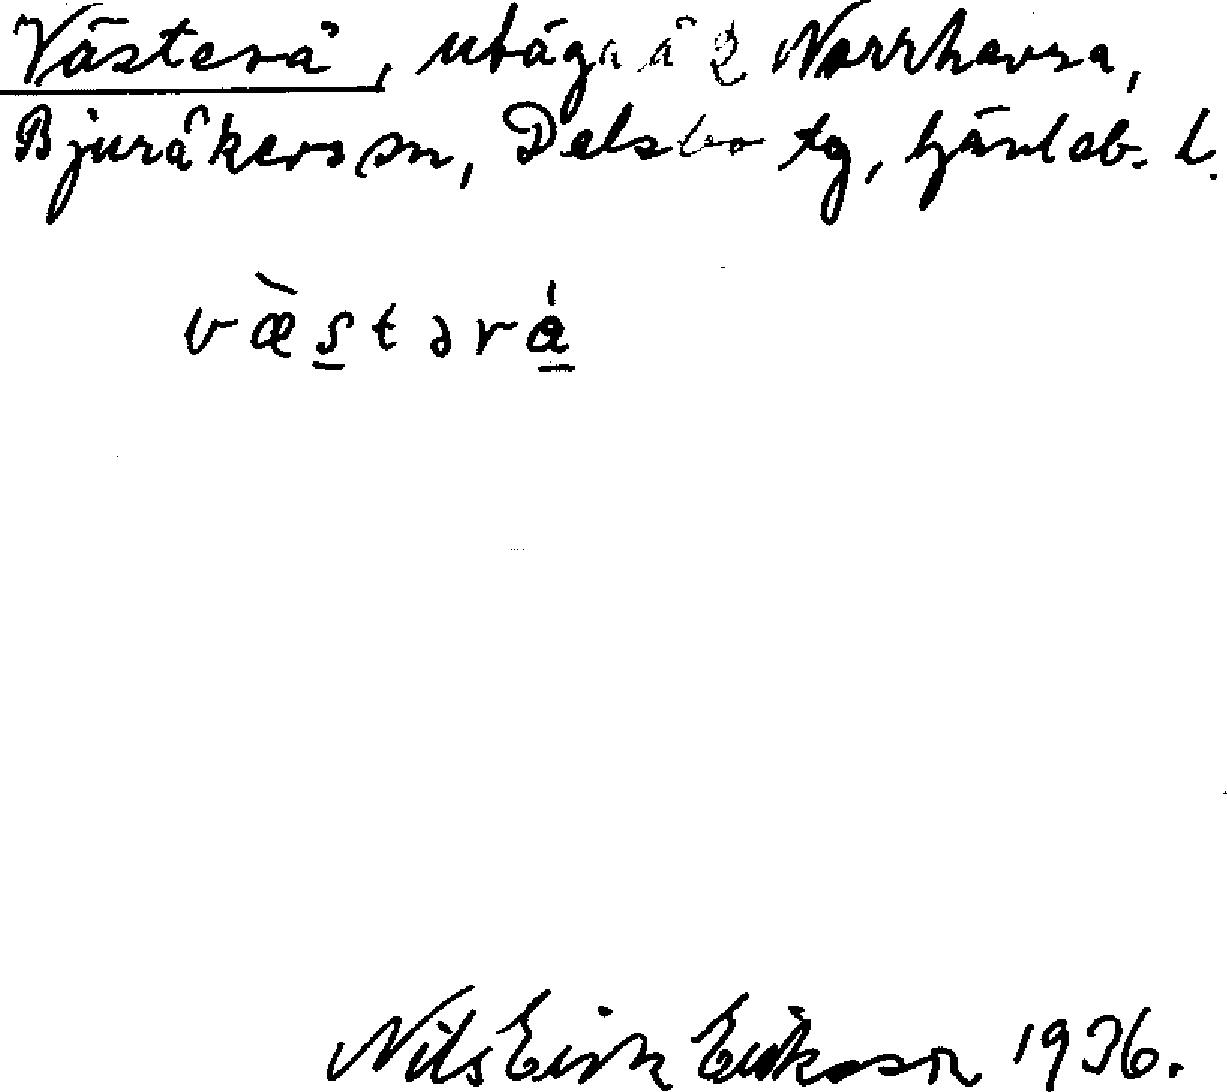 Västerå, utäga å 2 Norrhavra,
Bjuråkers sn, Delsbo tg, Gävleb. l.
væ̀stərá
Nils Erik Eriksson 1936.